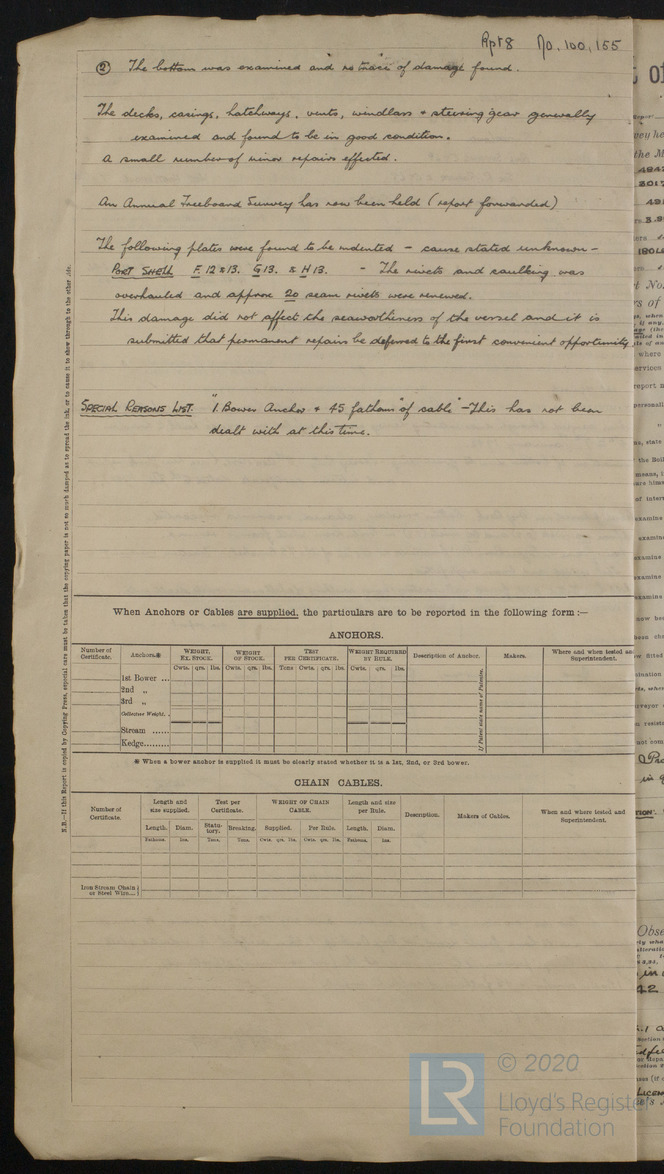 Rpt 8 No. 100,155
② The bottom was examined and no trace of damage found.
The decks, casings, hatchways, vents, windlass + steering gear generally
examined and found to be in good condition.
A small number of minor repairs effected.
An Annual Freeboard Survey has now been held (report forwarded)
The following plates were found to be indented - cause stated unknown -
PORT SHELL F.12 & 13. G 13. & H 13. - The rivets and caulking was
overhauled and approx 20 seam rivets were renewed.
This damage did not affect the seaworthiness of the vessel and it is
submitted that permanent repairs be deferred to the first convenient opportunity
SPECIAL REASONS LIST. "1 Bower Anchor + 45 fathom of cable" - This has not been
dealt with at this time.
N.B.—If this Report is copied by Copying Press, especial care must be taken that the copying paper is not so much damped as to spread the ink, or to cause it to show through to the other side.
When Anchors or Cables are supplied, the particulars are to be reported in the following form :—
ANCHORS.
Number of Certificate. Anchors.* WEIGHT, EX. STOCK. WEIGHT OF STOCK. TEST PER CERTIFICATE. WEIGHT REQUIRED BY RULE. Description of Anchor. Makers. Where and when tested and Superintendent.
Cwts. qrs. lbs. Cwts. qrs. lbs. Tons Cwts. qrs. lbs. Cwts. qrs. lbs.
1st Bower ...
2nd „
3rd „
Collective Weight.
Stream ......
Kedge.........
If Patent state name of Patentee.
* When a bower anchor is supplied it must be clearly stated whether it is a 1st, 2nd, or 3rd bower.
CHAIN CABLES.
Number of Certificate. Length and size supplied. Test per Certificate. WEIGHT OF CHAIN CABLE. Length and size per Rule. Description. Makers of Cables. When and where tested and Superintendent.
Length. Diam. Statutory. Breaking. Supplied. Per Rule. Length. Diam.
Fathoms. Ins. Tons. Tons. Cwts. qrs. lbs. Cwts. qrs. lbs. Fathoms. Ins.
Iron Stream Chain
or Steel Wire....
© 2020
Lloyd's Register
Foundation
LR